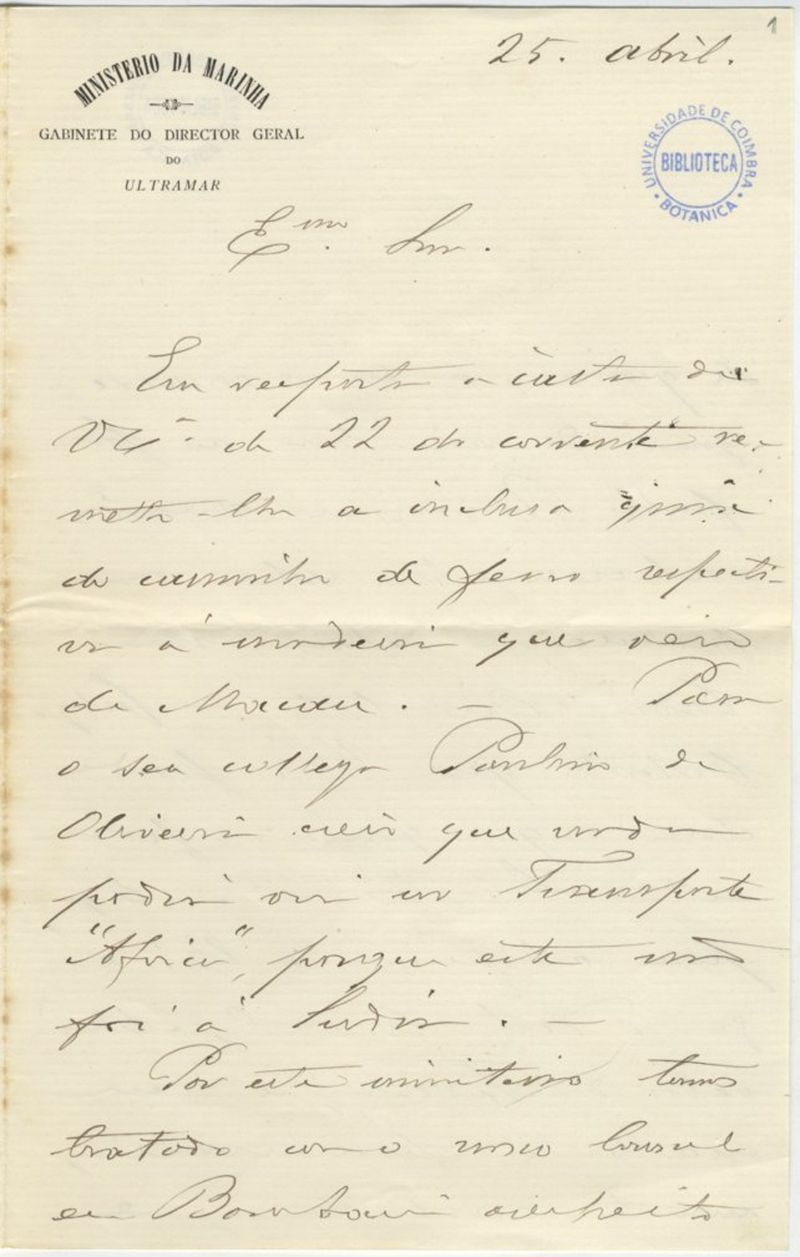 1
25. abril.
MINISTERIO DA MARINHA
GABINETE DO DIRECTOR GERAL
DO
ULTRAMAR
UNIVERSIDADE DE COIMBRA
BIBLIOTECA
BOTANICA
E.mo Snr.
Em resposta á carta de
V Ex.ª de 22 do corrente re-
metto-lhe a inclusa guia
do caminho de ferro respecti-
va á madeira que veio
de Macau. — Para
o seu collega Paulino de
Oliveira creio que nada
poderá vir no Transporte
"Africa", porque este não
foi á India. —
Por este ministerio temos
tratado com o nosso Consul
em Bombaim a respeito